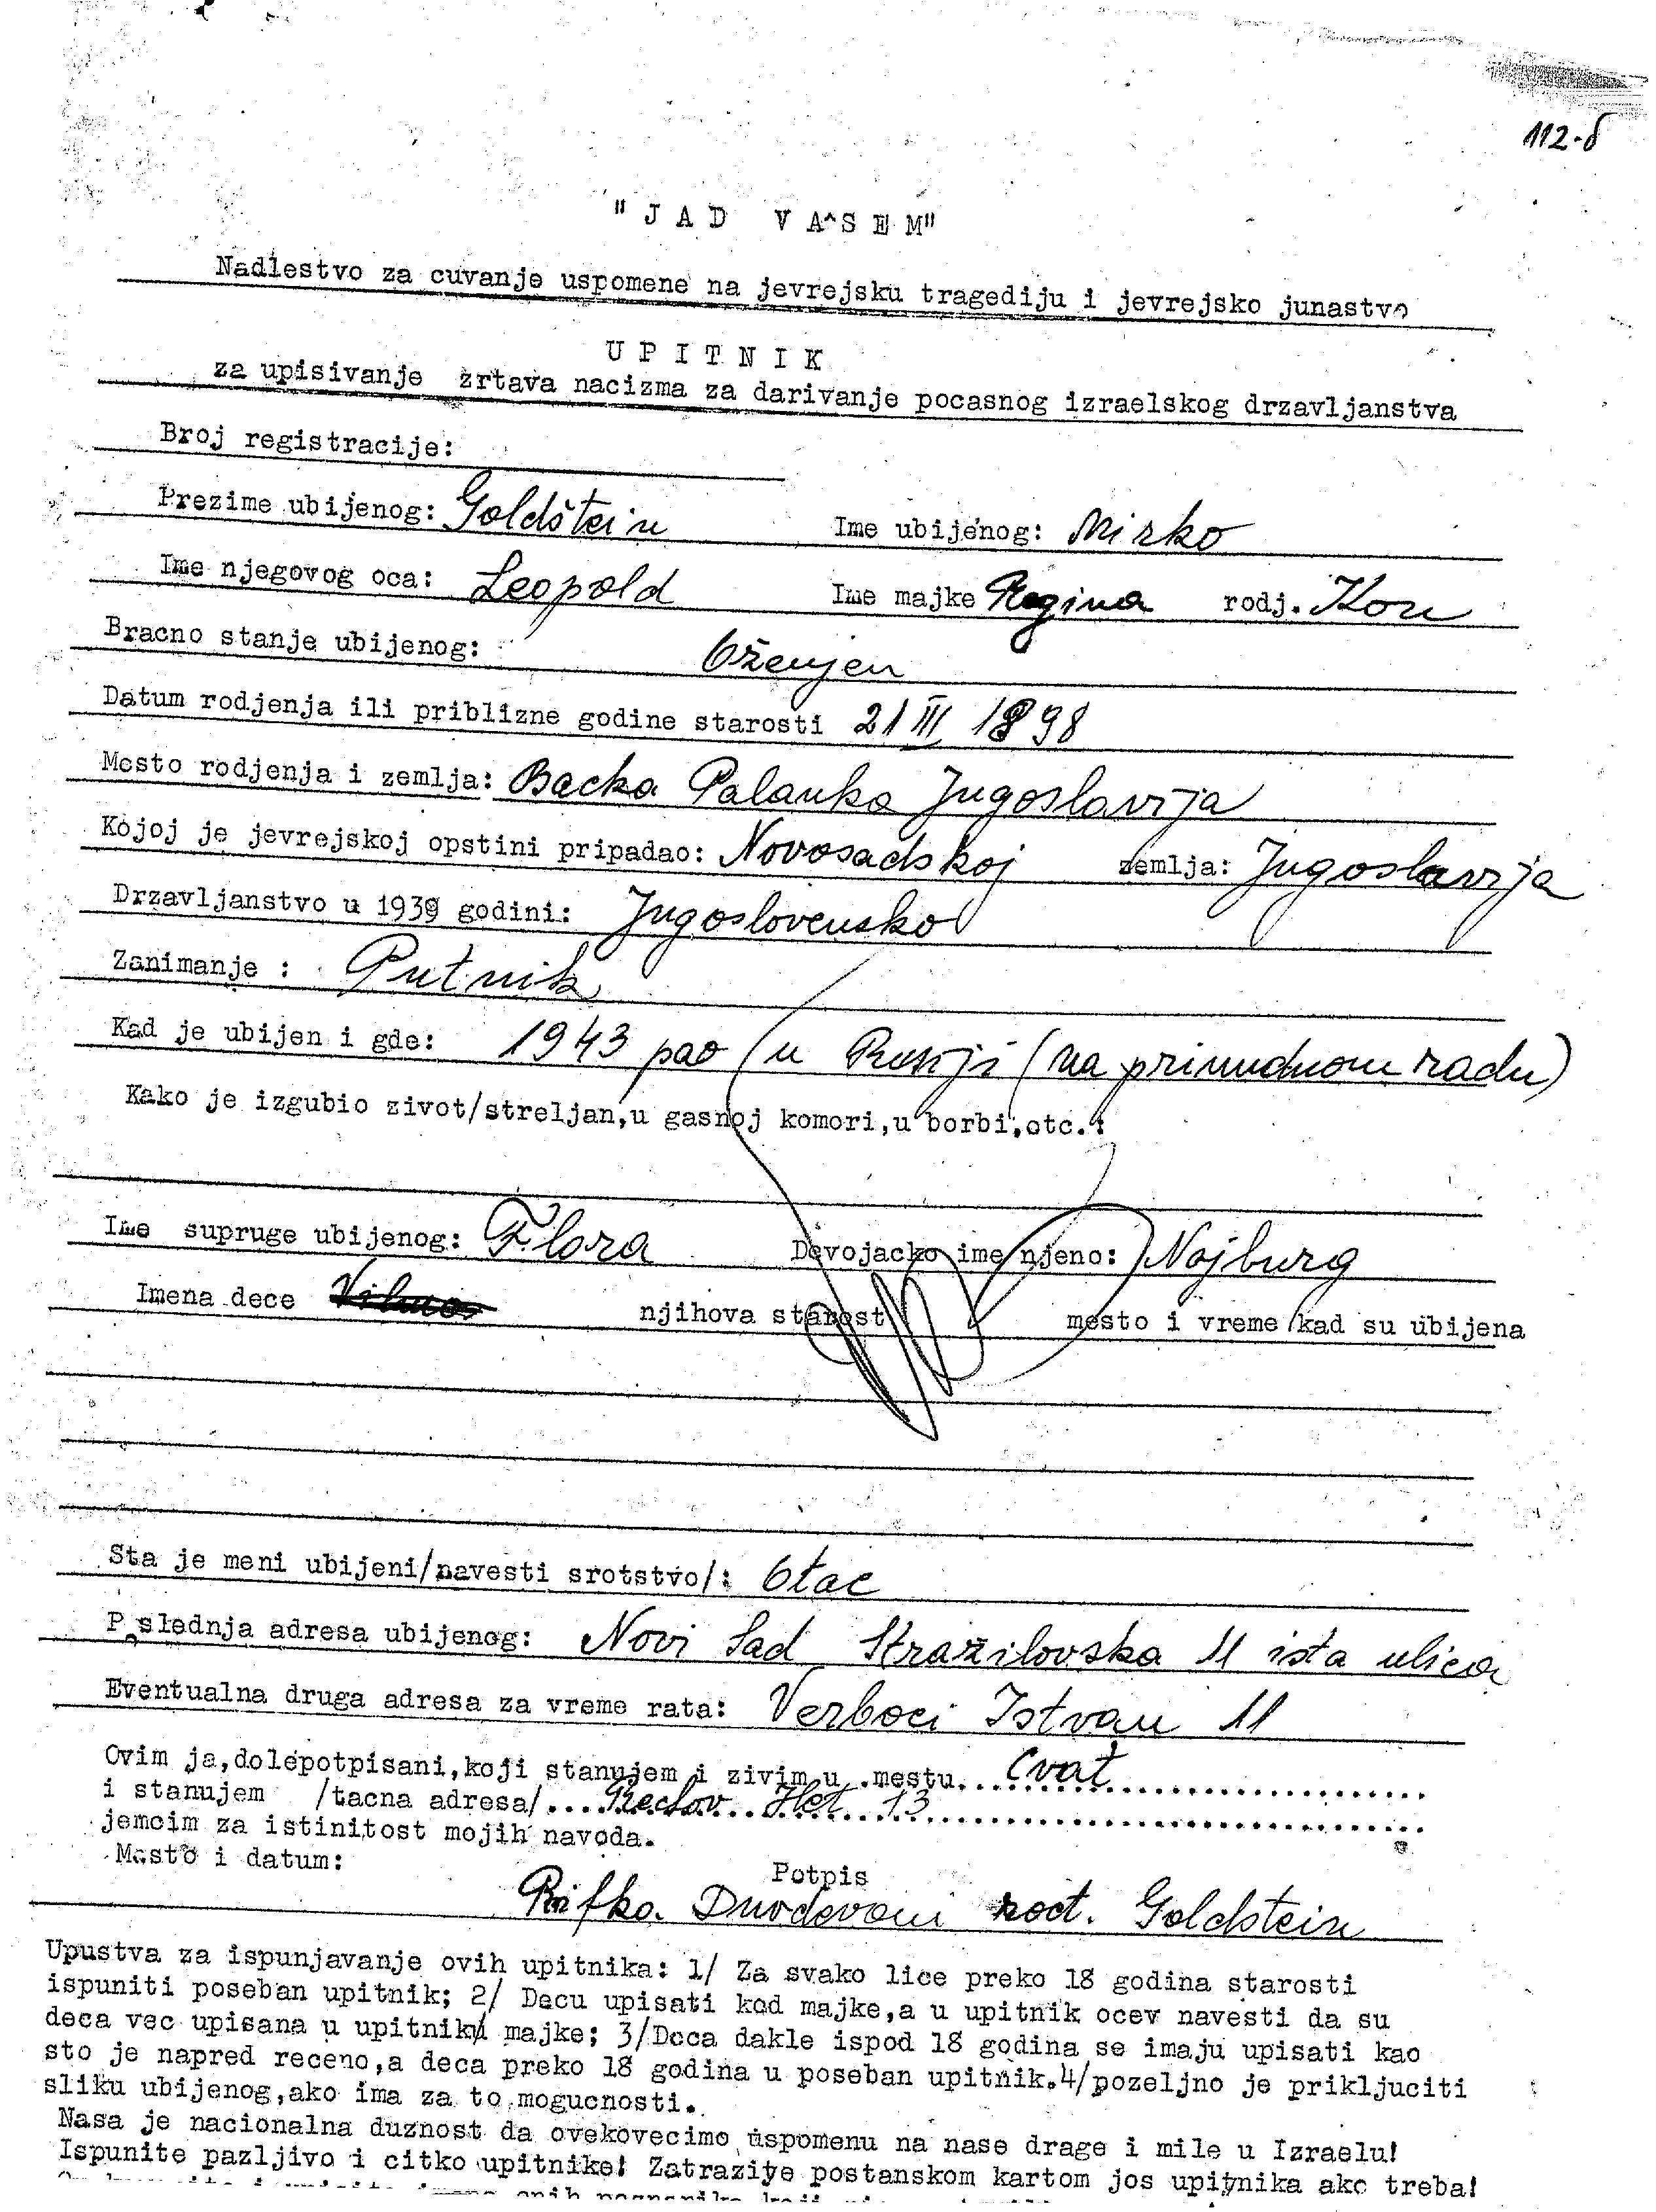 112-б
"JAD VA^SEM"
Nadlestvo za cuvanje uspomene na jevrejsku tragediju i jevrejsko junastvo
UPITNIK
za upisivanje zrtava nacizma za darivanje pocasnog izraelskog drzavljanstva
Broj registracije:
Prezime ubijenog: Goldštein Ime ubijenog: Mirko
Ime njegovog oca: Leopold Ime majke Regina rodj. Kon
Bracno stanje ubijenog: Oženjen
Datum rodjenja ili priblizne godine starosti 21 III 1898
Mesto rodjenja i zemlja: Backa Palanka Jugoslavija
Kojoj je jevrejskoj opstini pripadao: Novosadskoj zemlja: Jugoslavija
Drzavljanstvo u 1939 godini: Jugoslovensko
Zanimanje : Putnik
Kad je ubijen i gde: 1943 pao u Rusiji (na prinudnom radu)
Kako je izgubio zivot/streljan,u gasnoj komori,u borbi,etc.:
Ime supruge ubijenog: Flora Devojacko ime njeno: Nojburg
Imena dece njihova starost mesto i vreme kad su ubijena
Sta je meni ubijeni/navesti srotstvo/: Otac
Poslednja adresa ubijenog: Novi Sad Stražilovska 11 ista ulica
Eventualna druga adresa za vreme rata: Verboci Istvan 11
Ovim ja,dolepotpisani,koji stanujem i zivim u mestu... Cvat
i stanujem /tacna adresa/... Rechov Het 13
jemcim za istinitost mojih navoda.
Mesto i datum:
Potpis
Rifka Duvdevani rod. Goldstein
Upustva za ispunjavanje ovih upitnika: 1/ Za svako lice preko 18 godina starosti
ispuniti poseban upitnik; 2/ Decu upisati kod majke,a u upitnik ocev navesti da su
deca vec upisana u upitniku majke; 3/Deca dakle ispod 18 godina se imaju upisati kao
sto je napred receno,a deca preko 18 godina u poseban upitnik.4/pozeljno je prikljuciti
sliku ubijenog,ako ima za to mogucnosti.
Nasa je nacionalna duznost da ovekovecimo uspomenu na nase drage i mile u Izraelu!
Ispunite pazljivo i citko upitnike! Zatrazite postanskom kartom jos upitnika ako treba!